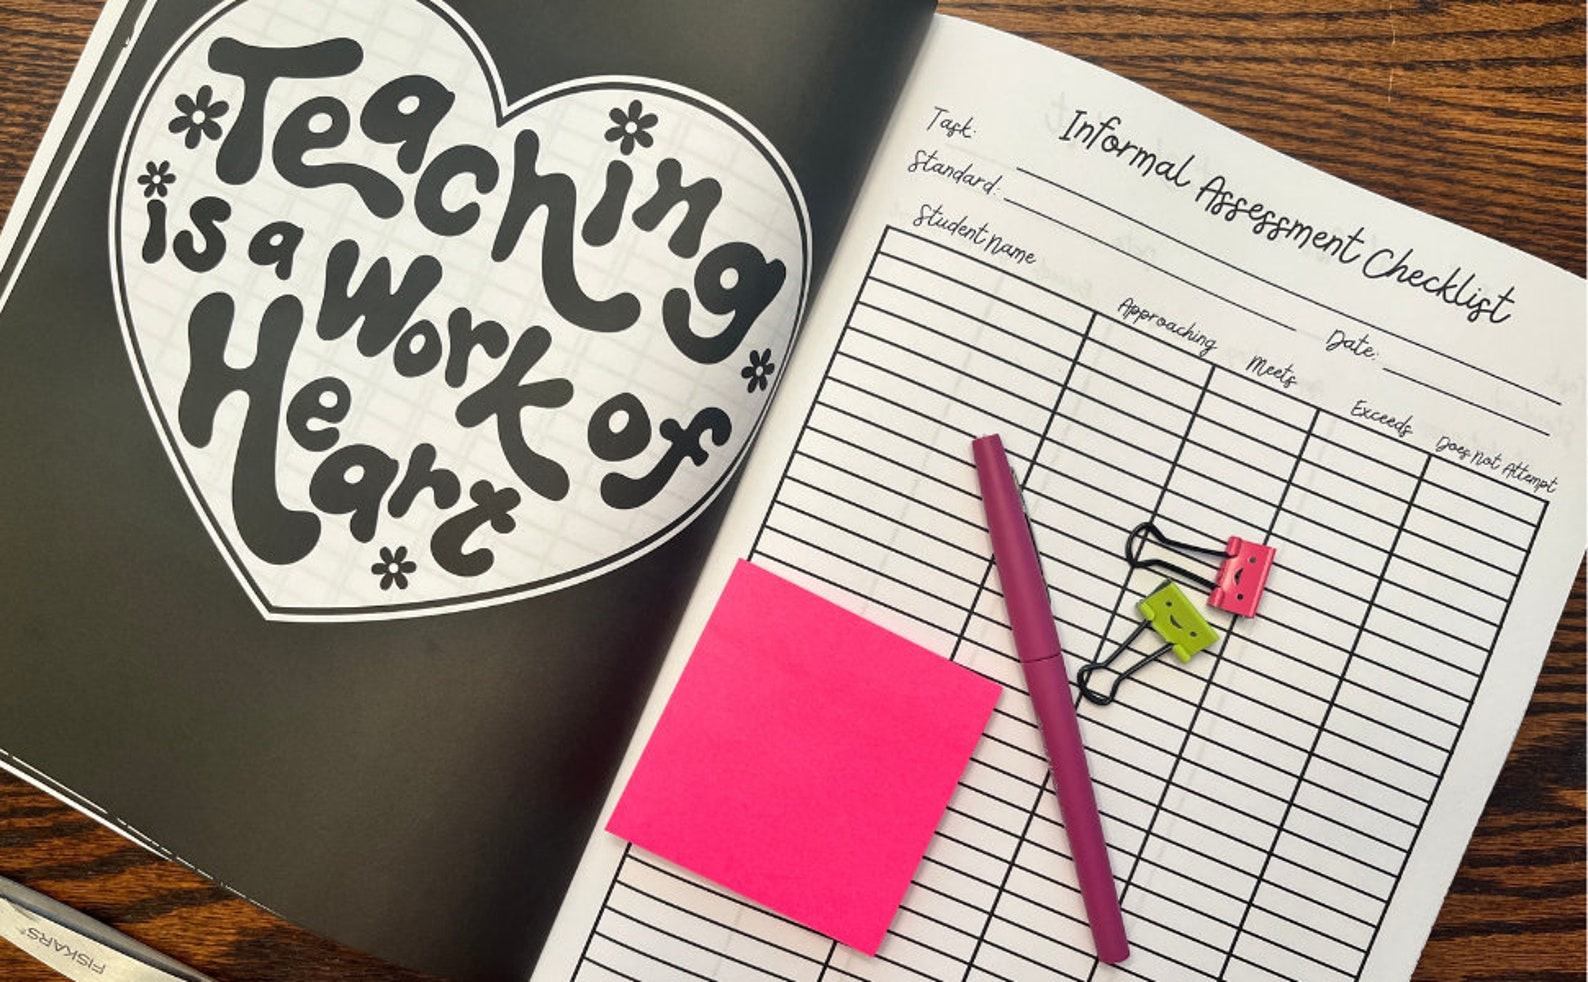 Teaching
is a Work of
Heart
Informal Assessment Checklist
Task:
Standard:
Date:
Student Name
Approaching
Meets
Exceeds
Does Not Attempt
FISKARS